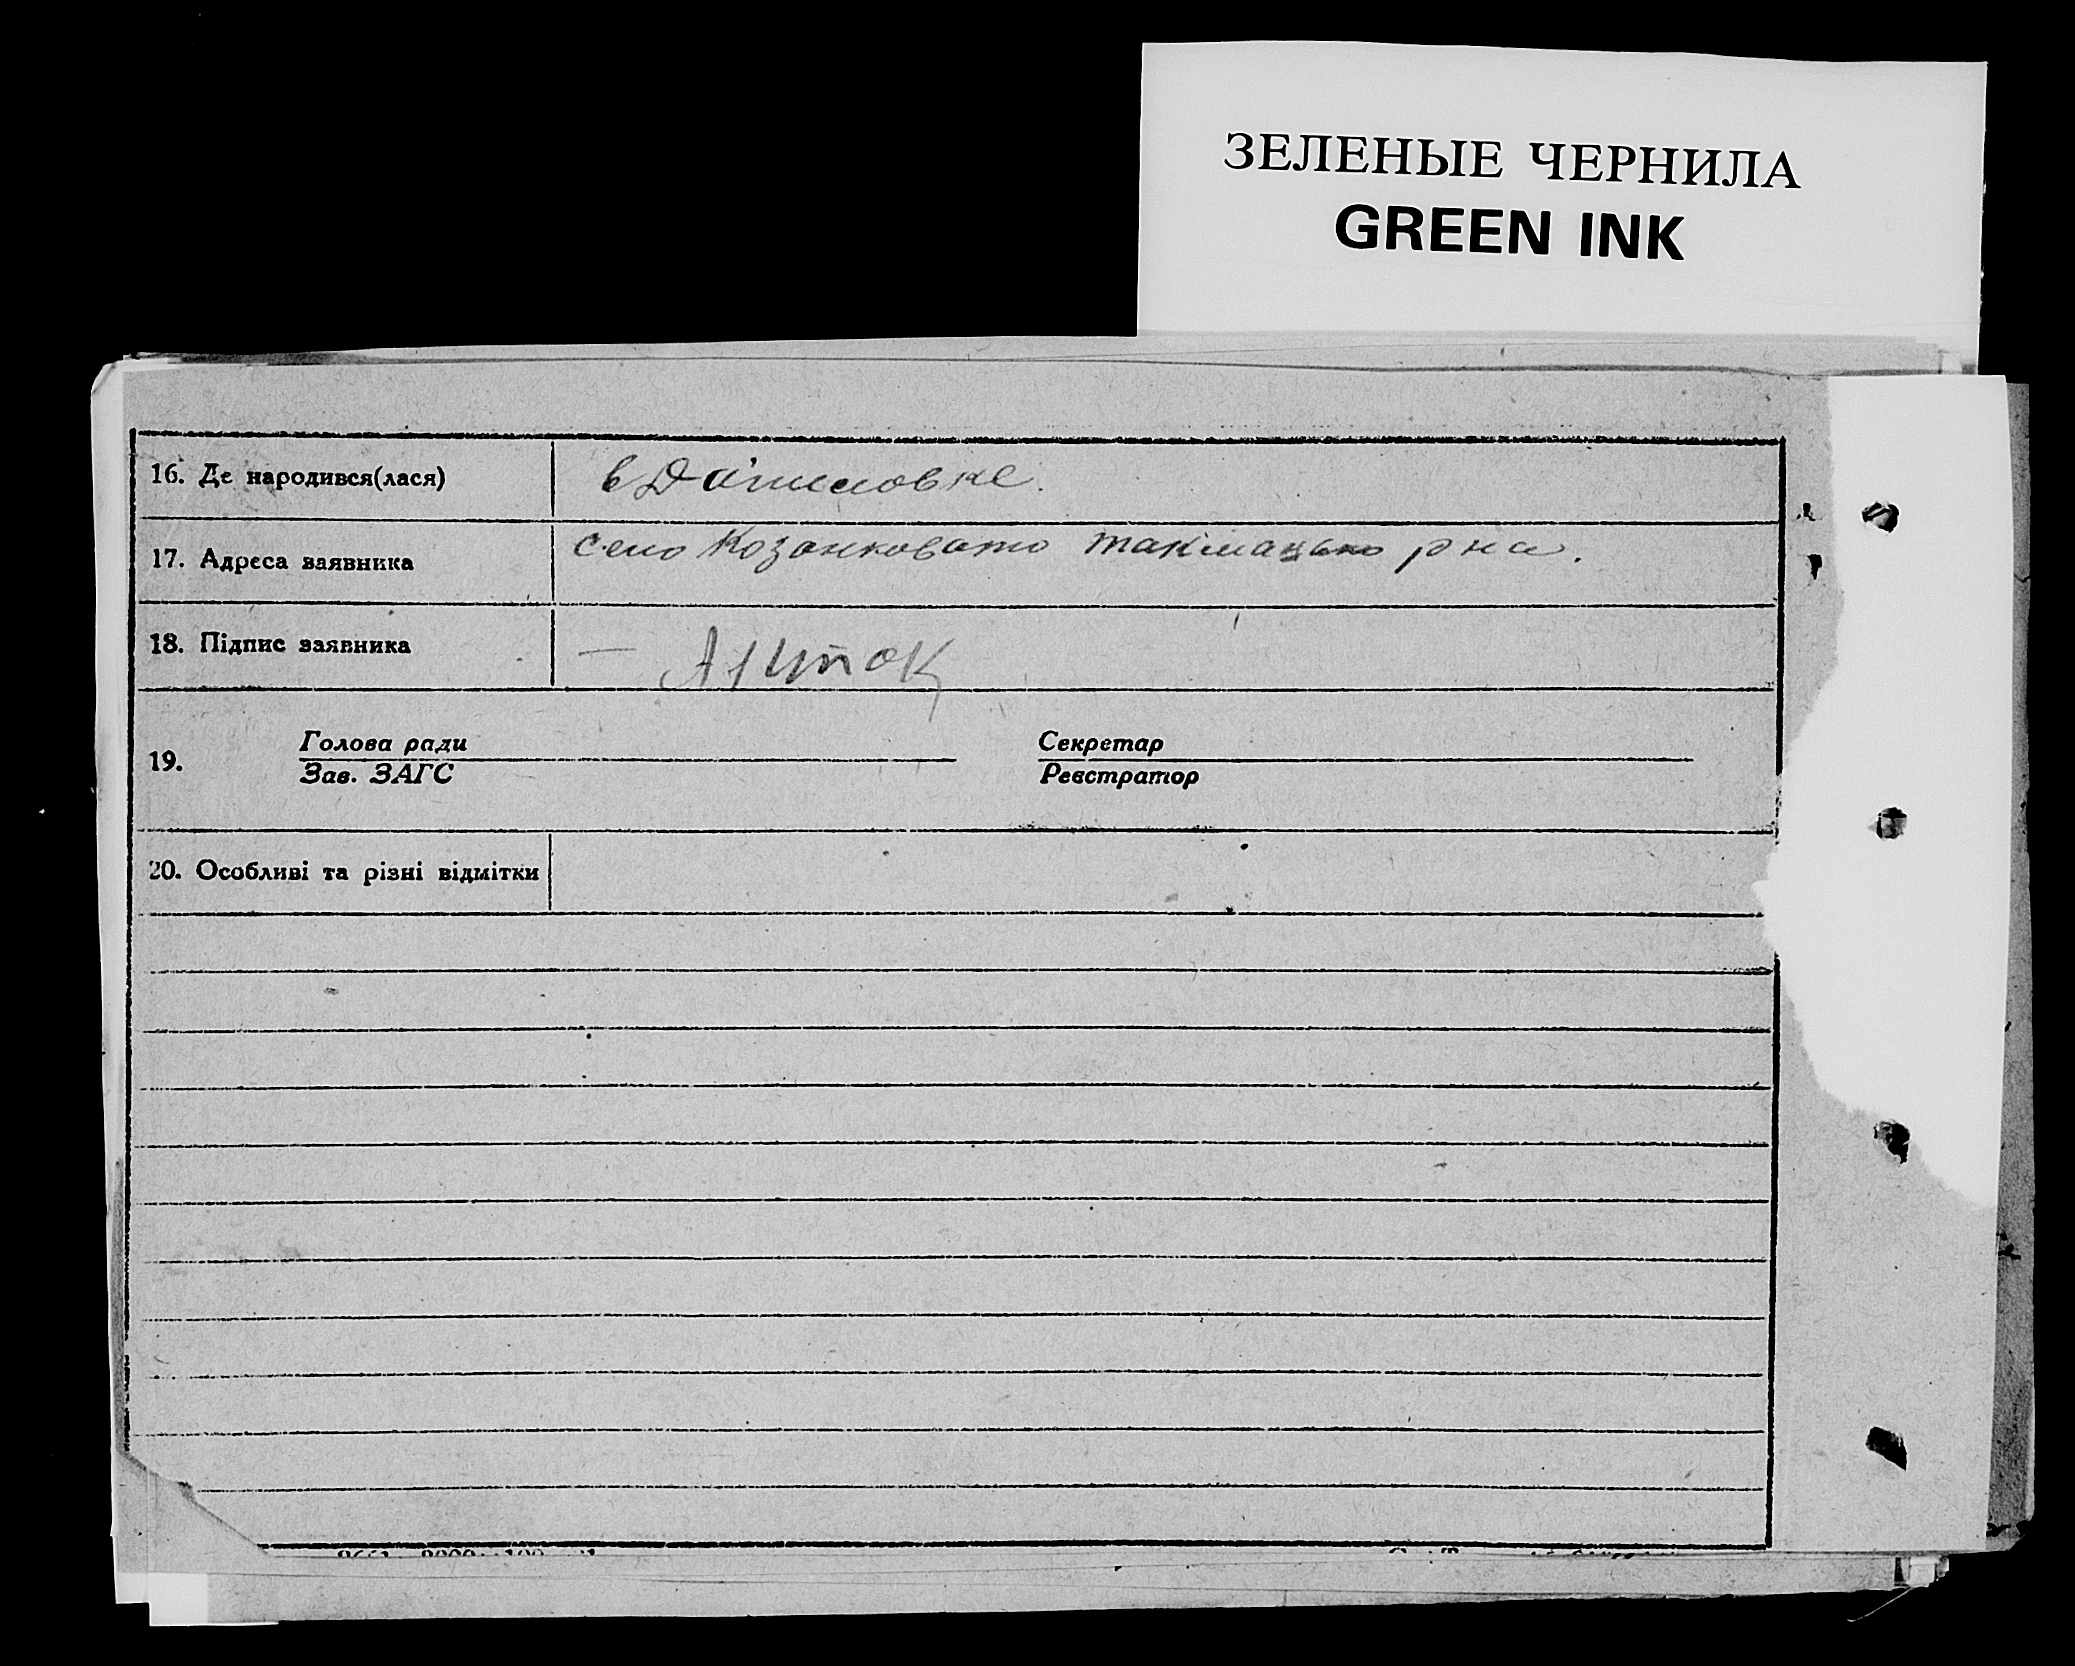 ЗЕЛЕНЫЕ ЧЕРНИЛА
GREEN INK
16. Де народився(лася)
в Даниловке.
17. Адреса заявника
село Козанковато Такмацько рна.
18. Підпис заявника
—
19.
Голова ради
Зав. ЗАГС
Секретар
Реєстратор
20. Особливі та різні відмітки